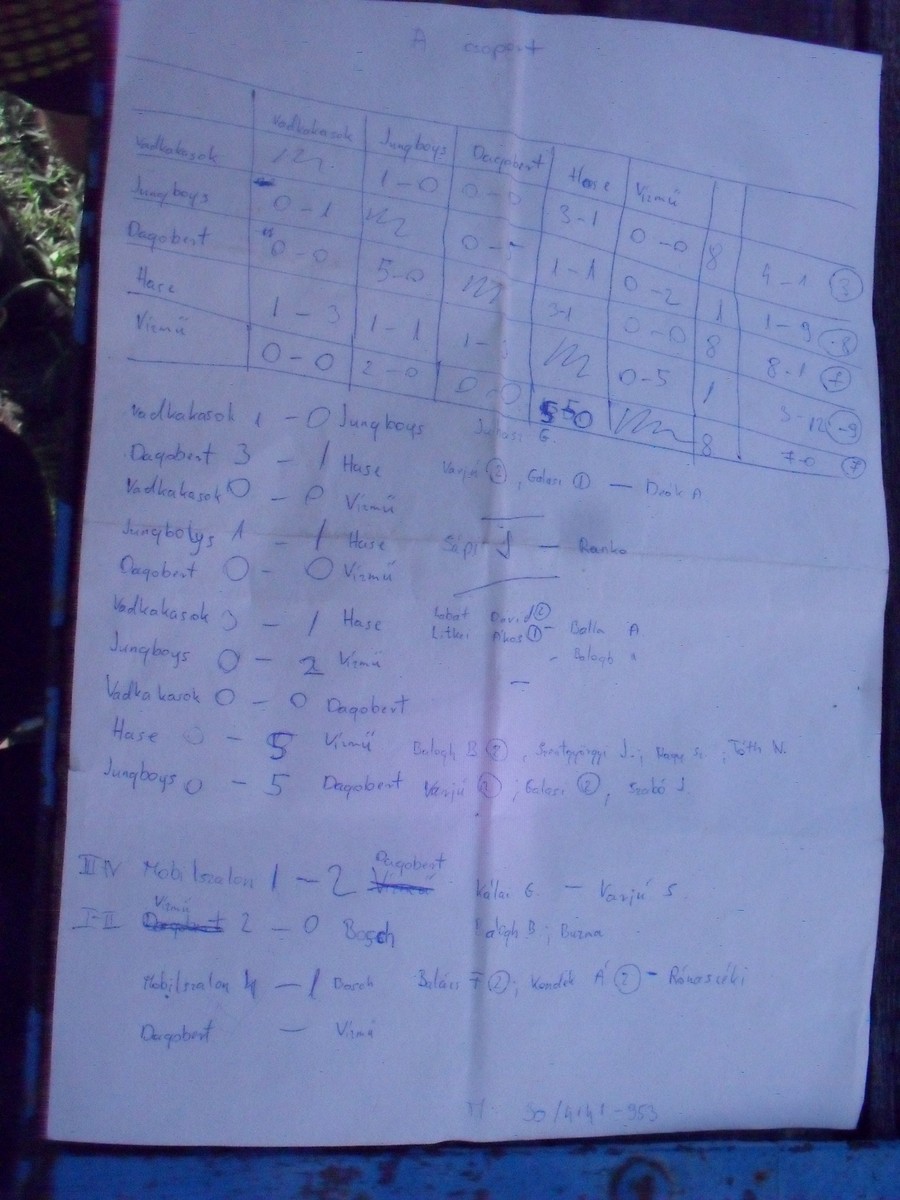 A csoport
Vadkakasok Jungboys Dagobert Hase Vízmű
Vadkakasok 1-0 0-0 3-1 0-0 8 4-1 3
Jungboys 0-1 0-5 1-1 0-2 1 1-9 -8
Dagobert 0-0 5-0 3-1 0-0 8 8-1 7
Hase 1-3 1-1 1-3 0-5 1 3-12 -9
Vízmű 0-0 2-0 0-0 5-0 8 7-0 7
Vadkakasok 1-0 Jungboys Juhász G.
Dagobert 3-1 Hase Varjú 2, Galasi 1 —
Vadkakasok 0-0 Vízmű
Jungbotys 1-1 Hase —
Dagobert 0-0 Vízmű
Vadkakasok 3-1 Hase Dávid 2 - Balla A
Litkei Ákos 1 - Balogh
Jungboys 0-2 Vízmű
Vadkakasok 0-0 Dagobert
Hase 0-5 Vízmű Balogh B 2, Szentgyörgyi J., Tóth N.
Jungboys 0-5 Dagobert Varjú 2, Galasi 2, Szabó J.
III-IV Mobilszalon 1-2 Dagobert G. - Varjú S
I-II Vízmű 2-0 Bosch Balogh B; Buzna
Mobilszalon 4-1 Balázs F 2; Kondék Á 2 -
Dagobert - Vízmű